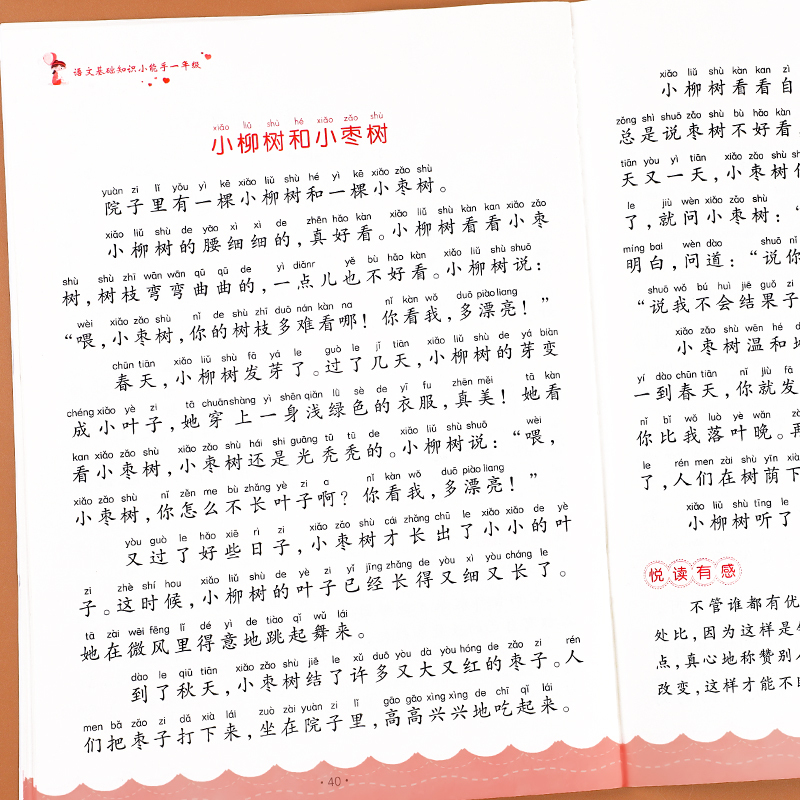 语文基础知识小能手一年级
xiǎo liǔ shù hé xiǎo zǎo shù
小柳树和小枣树
yuàn zi lǐ yǒu yì kē xiǎo liǔ shù hé yì kē xiǎo zǎo shù
院子里有一棵小柳树和一棵小枣树。
xiǎo liǔ shù de yāo xì xì de zhēn hǎo kàn xiǎo liǔ shù kàn kan xiǎo zǎo
小柳树的腰细细的，真好看。小柳树看看小枣
shù shù zhī wān wān qū qū de yì diǎnr yě bù hǎo kàn xiǎo liǔ shù shuō
树，树枝弯弯曲曲的，一点儿也不好看。小柳树说：
wèi xiǎo zǎo shù nǐ de shù zhī duō nán kàn na nǐ kàn wǒ duō piào liang
“喂，小枣树，你的树枝多难看哪！你看我，多漂亮！”
chūn tiān xiǎo liǔ shù fā yá le guò le jǐ tiān xiǎo liǔ shù de yá biàn
春天，小柳树发芽了。过了几天，小柳树的芽变
chéng xiǎo yè zi tā chuān shàng yì shēn qiǎn lǜ sè de yī fu zhēn měi tā kàn
成小叶子，她穿上一身浅绿色的衣服，真美！她看
kan xiǎo zǎo shù xiǎo zǎo shù hái shi guāng tū tū de xiǎo liǔ shù shuō wèi
看小枣树，小枣树还是光秃秃的。小柳树说：“喂，
xiǎo zǎo shù nǐ zěn me bù zhǎng yè zi a nǐ kàn wǒ duō piào liang
小枣树，你怎么不长叶子啊？你看我，多漂亮！”
yòu guò le hǎo xiē rì zi xiǎo zǎo shù cái zhǎng chū le xiǎo xiǎo de yè
又过了好些日子，小枣树才长出了小小的叶
zi zhè shí hou xiǎo liǔ shù de yè zi yǐ jīng zhǎng de yòu xì yòu cháng le
子。这时候，小柳树的叶子已经长得又细又长了。
tā zài wēi fēng lǐ dé yì de tiào qǐ wǔ lái
她在微风里得意地跳起舞来。
dào le qiū tiān xiǎo zǎo shù jiē le xǔ duō yòu dà yòu hóng de zǎo zi rén
到了秋天，小枣树结了许多又大又红的枣子。人
men bǎ zǎo zi dǎ xià lái zuò zài yuàn zi lǐ gāo gāo xìng xìng de chī qǐ lái
们把枣子打下来，坐在院子里，高高兴兴地吃起来。
·40·
xiǎo liǔ shù kàn kan zì
小柳树看看自
zǒng shì shuō zǎo shù bù hǎo kàn
总是说枣树不好看
tiān yòu yì tiān xiǎo zǎo shù
天又一天，小枣树
le jiù wèn xiǎo zǎo shù
了，就问小枣树：“
míng bai wèn dào shuō nǐ
明白，问道：“说你
shuō wǒ bú huì jiē guǒ zi
“说我不会结果子
xiǎo zǎo shù wēn hé de
小枣树温和地
yí dào chūn tiān nǐ jiù fā
一到春天，你就发
nǐ bǐ wǒ luò yè wǎn zài
你比我落叶晚。再
le rén men zài shù yīn xià
了，人们在树荫下
xiǎo liǔ shù tīng le
小柳树听了
悦读有感
不管谁都有优
处比，因为这样是
点，真心地称赞别人
改变，这样才能不